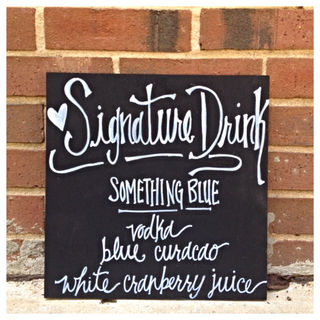 Signature Drink
SOMETHING BLUE
vodka
blue curacao
white cranberry juice